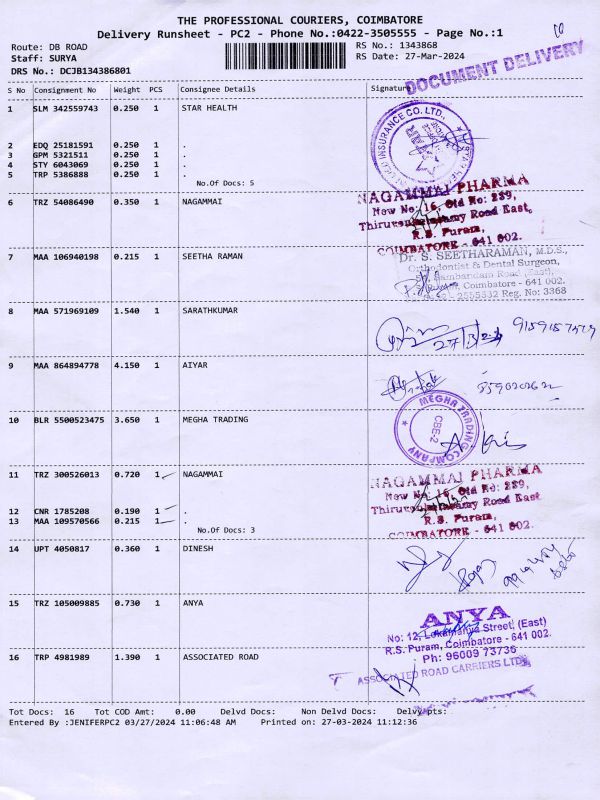 THE PROFESSIONAL COURIERS, COIMBATORE
Delivery Runsheet - PC2 - Phone No.:0422-3505555 - Page No.:1
Route: DB ROAD
Staff: SURYA
DRS No.: DCJB134386801
RS No.: 1343868
RS Date: 27-Mar-2024
DOCUMENT DELIVERY
S No Consignment No Weight PCS Consignee Details Signature
1 SLM 342559743 0.250 1 STAR HEALTH
INSURANCE CO. LTD.
2 EDQ 25181591 0.250 1 .
3 GPM 5321511 0.250 1 .
4 STY 6043069 0.250 1 .
5 TRP 5386888 0.250 1 .
No.Of Docs: 5
6 TRZ 54086490 0.350 1 NAGAMMAI
NAGAMMAI PHARMA
New No: 16, Old No: 289,
Road East,
R.S. Puram,
COIMBATORE - 641 002.
7 MAA 106940198 0.215 1 SEETHA RAMAN
Dr. S. SEETHARAMAN, M.D.S.,
Orthodontist & Dental Surgeon,
Sambandam Road (East),
Coimbatore - 641 002.
2555332 Reg. No: 3368
8 MAA 571969109 1.540 1 SARATHKUMAR
27/3/24
9 MAA 864894778 4.150 1 AIYAR
10 BLR 5500523475 3.650 1 MEGHA TRADING
MEGHA TRADING COMPANY
CBE-2
11 TRZ 300526013 0.720 1 NAGAMMAI
NAGAMMAI PHARMA
New No: 16, Old No: 289,
Road East
R.S. Puram,
COIMBATORE - 641 002.
12 CNR 1785208 0.190 1 .
13 MAA 109570566 0.215 1 .
No.Of Docs: 3
14 UPT 4050817 0.360 1 DINESH
15 TRZ 105009885 0.730 1 ANYA
ANYA
No: 12, Lokamanya Street, (East)
R.S. Puram, Coimbatore - 641 002.
Ph: 96009 73736
16 TRP 4981989 1.390 1 ASSOCIATED ROAD
ASSOCIATED ROAD CARRIERS LTD.
Tot Docs: 16 Tot COD Amt: 0.00 Delvd Docs: Non Delvd Docs: Delvy pts:
Entered By :JENIFERPC2 03/27/2024 11:06:48 AM Printed on: 27-03-2024 11:12:36